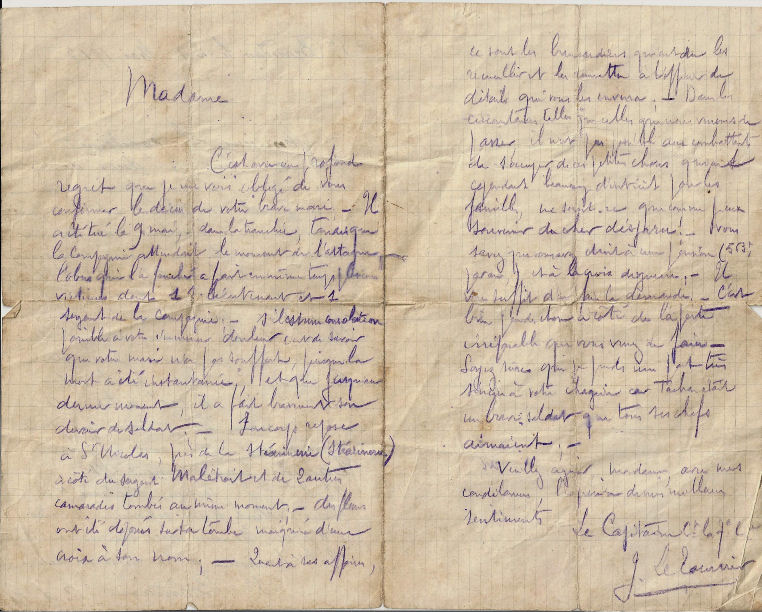 Madame
C'est avec un profond
regret que je me vois obligé de vous
confirmer le décès de votre brave mari. — Il
a été tué le 9 mai, dans la tranchée, tandis que
la compagnie attendait le moment de l'attaque,
l'obus qui l'a fauché a fait en même temps
victimes dont lieutenant et 1
sergent de la compagnie. — S'il est une consolation
possible à votre douleur c'est de savoir
que votre mari n'a pas souffert, puisque la
mort a été instantanée, et que jusqu'au
dernier moment, il a fait bravement son
devoir de soldat. — Son corps repose
à St Nicolas, près de la Stéarinerie (Stéarinerie)
à côté du sergent Malétroit et de 2 autres
camarades tombés au même moment. — des fleurs
ont été déposées sur sa tombe d'une
croix à son nom; — Quant à ses affaires,
ce sont les brancardiers qui ont dû les
recueillir et les remettre à l'officier de
détails qui vous les enverra. — Dans les
circonstances telles que celles que nous venons de
passer il n'est pas possible aux combattants
de s'occuper de ces petites choses qui ont
cependant beaucoup d'intérêt pour les
familles, ne serait-ce que comme pieux
souvenir du cher disparu. — Vous
savez que vous avez droit à une pension (563f
par an) et à — Il
vous suffit d'en faire la demande. — C'est
bien peu de chose à côté de la perte
irréparable que vous venez de faire —
Soyez sûre que je prends une part très
à votre chagrin car était
un brave soldat que tous ses chefs
aimaient. —
Veuillez agréer, madame, avec mes
condoléances, l'expression de mes meilleurs
sentiments
Le Capitaine Ct la 7e Cie
J. Le Tournier